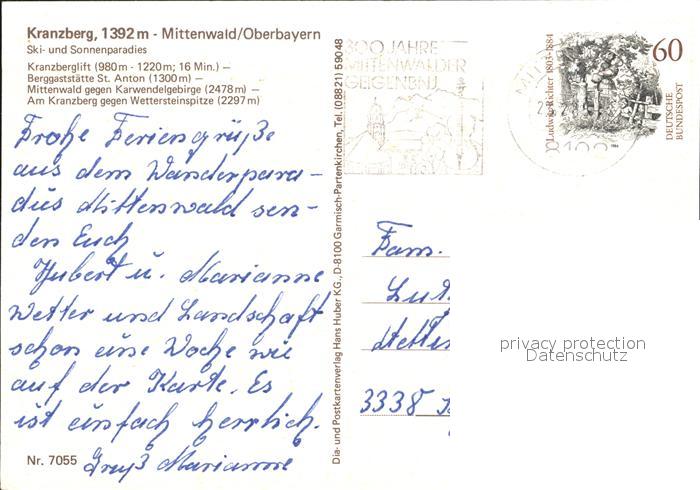 Kranzberg, 1392 m - Mittenwald/Oberbayern
Ski- und Sonnenparadies
Kranzberglift (980 m - 1220 m; 16 Min.) —
Berggaststätte St. Anton (1300 m) —
Mittenwald gegen Karwendelgebirge (2478 m) —
Am Kranzberg gegen Wettersteinspitze (2297 m)
Frohe Feriengrüße
aus dem Wanderpara-
dies Mittenwald sen-
den Euch
Hubert u. Marianne
Wetter und Landschaft
schon eine Woche wie
auf der Karte. Es
ist einfach herrlich.
Gruß Marianne
Nr. 7055
Dia- und Postkartenverlag Hans Huber KG., D-8100 Garmisch-Partenkirchen, Tel. (08821) 59048
300 JAHRE
MITTENWALDER
GEIGENBAU
Ludwig Richter 1803-1884
60
DEUTSCHE
BUNDESPOST
Fam.
3338
privacy protection
Datenschutz